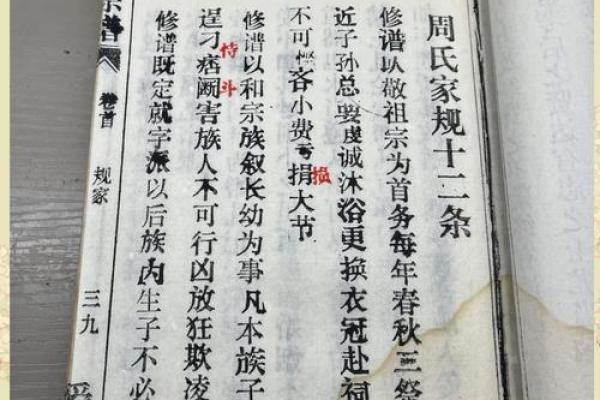 周氏家规十二条
修谱以敬祖宗为首务每年春秋三祭
近子孙总要虔诚沐浴更换衣冠赴祠
不可悭客小费亏捐大节
修谱以和宗族叙长幼为事凡本族子
恃斗
逞刁痞阚害族人不可行凶放狂欺凌
修谱既定就字派以后族内生子不必
宗谱
卷首
规家
三九